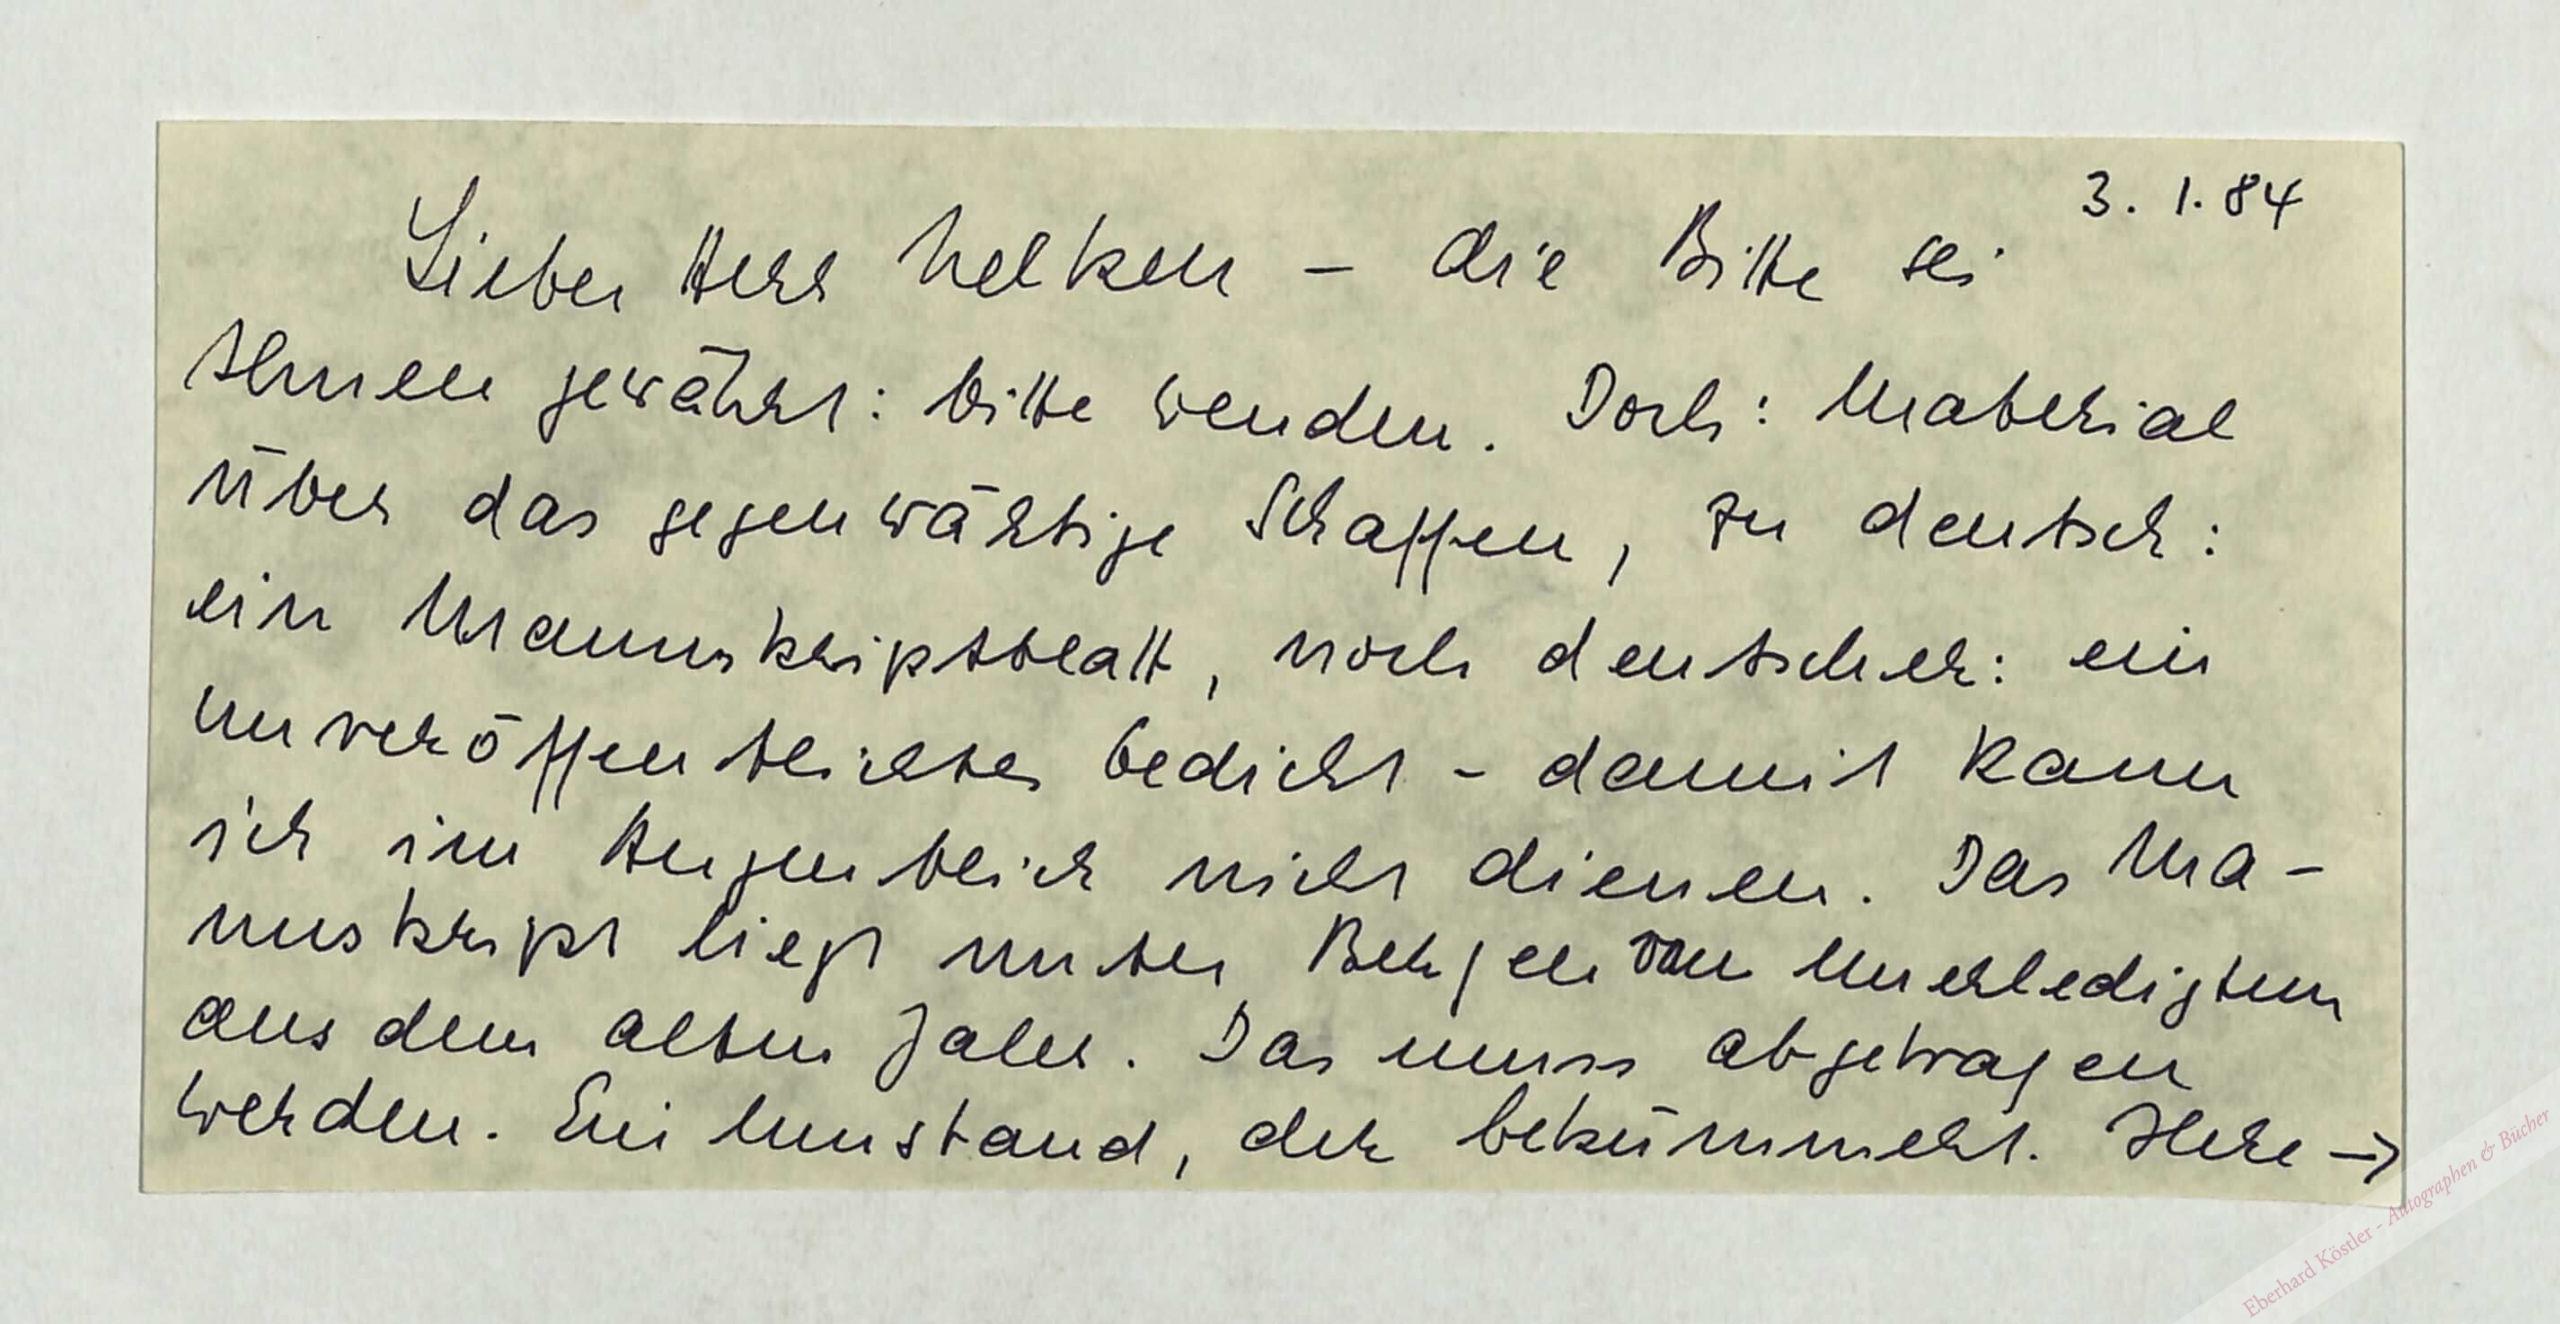 3. 1. 84
Lieber Herr Nelken – die Bitte sei
Ihnen gewährt: bitte wenden. Doch: Material
über das gegenwärtige Schaffen, zu deutsch:
ein Manuskriptblatt, noch deutscher: ein
unveröffentlichtes Gedicht – damit kann
ich im Augenblick nicht dienen. Das Ma-
nuskript liegt unter Bergen von Unerledigtem
aus dem alten Jahr. Das muss abgetragen
werden. Ein Umstand, der bekümmert. Ihre →
Eberhard Köstler - Autographen & Bücher